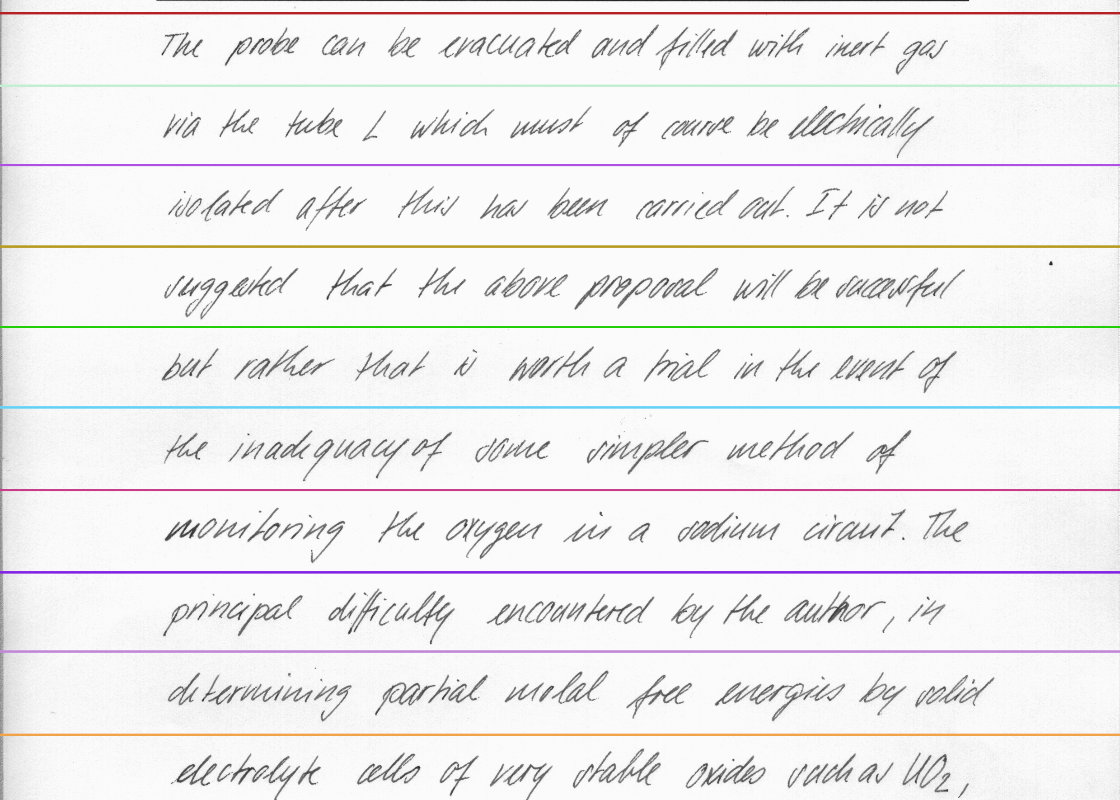 The probe can be evacuated and filled with inert gas
via the tube L which must of course be electrically
isolated after this has been carried out. It is not
suggested that the above proposal will be successful
but rather that is worth a trial in the event of
the inadequacy of some simpler method of
monitoring the oxygen in a sodium circuit. The
principal difficulty encountered by the author, in
determining partial molal free energies by solid
electrolyte cells of very stable oxides such as UO2,